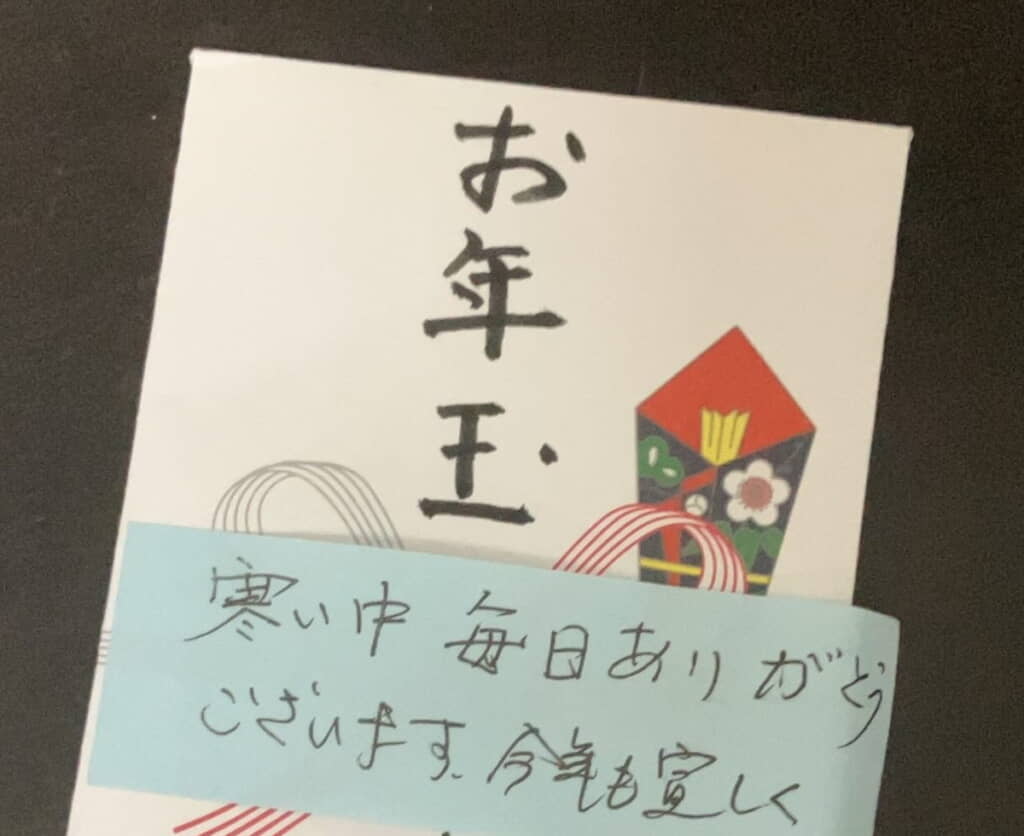 お年玉
寒い中 毎日ありがとう
ございます。今年も宜しく